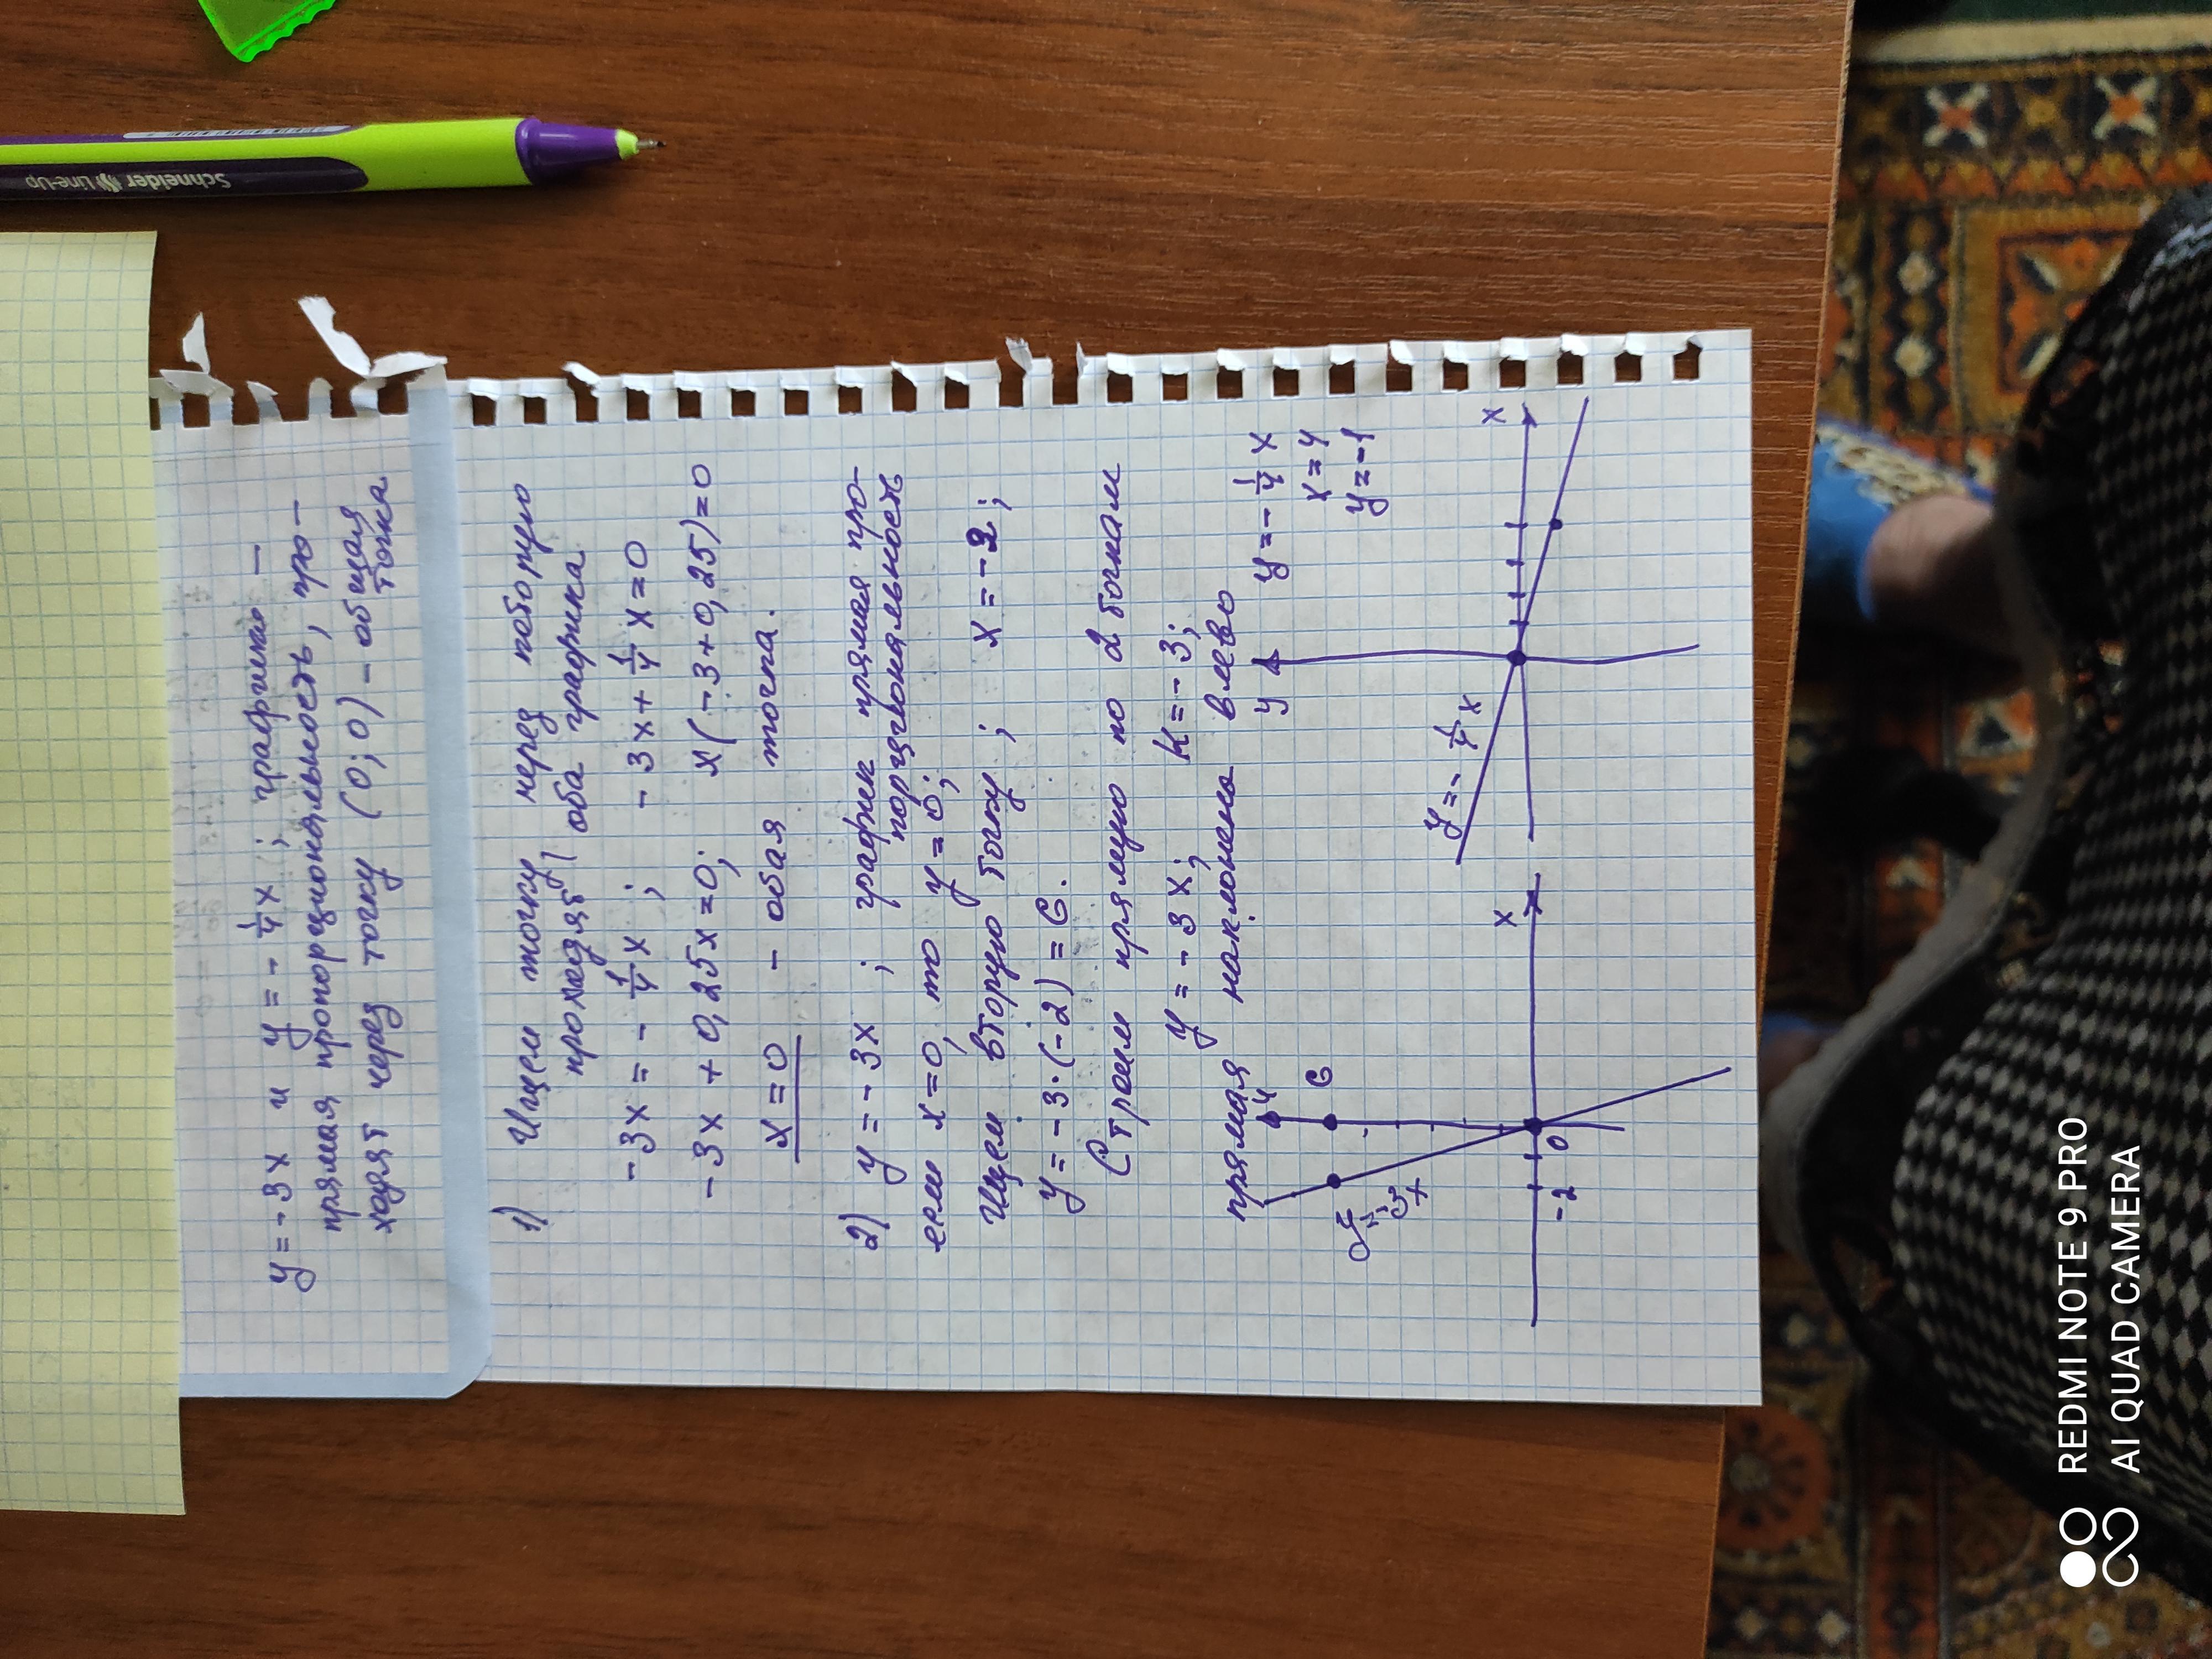 y = -3x и y = - 1/4 x ; графики -
прямая пропорциональность, про-
ходят через точку (0; 0) - общая
точка
1) Ищем точку через которую
проходят оба графика
-3x = - 1/4 x ; -3x + 1/4 x = 0
-3x + 0,25x = 0; x(-3 + 0,25) = 0
x = 0 - обая точка.
2) y = -3x ; график прямая про-
порциональность
если x = 0, то y = 0;
Ищем вторую точку ; x = -2 ;
y = -3·(-2) = 6.
Строим прямую по 2 точкам
y = -3x; k = -3;
прямая наклонена влево
y = - 1/4 x
x = 4
y = -1
y
6
y = -3x
-2
0
x
y
y = - 1/4 x
x
Schneider Line-Up
REDMI NOTE 9 PRO
AI QUAD CAMERA